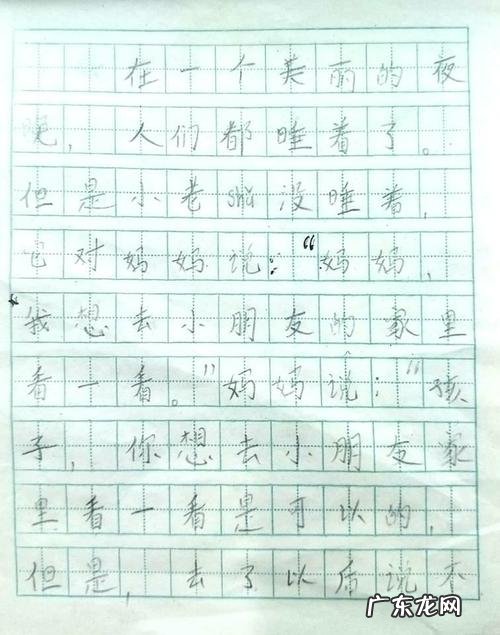 在一个美丽的夜
晚，人们都睡着了。
但是小老shǔ没睡着，
它对妈妈说：“妈妈，
我想去小朋友的家里
看一看。”妈妈说：“孩
子，你想去小朋友家
里看一看是可以的，
但是，去了以后说不
广东龙网